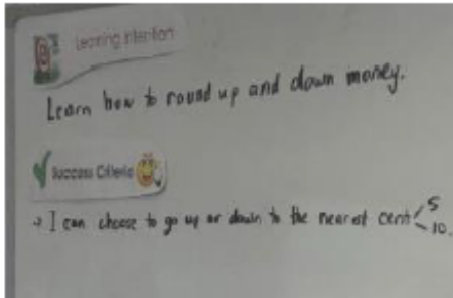 Learning Intention
Learn how to round up and down money.
Success Criteria
→ I can choose to go up or down to the nearest cent 5
10.